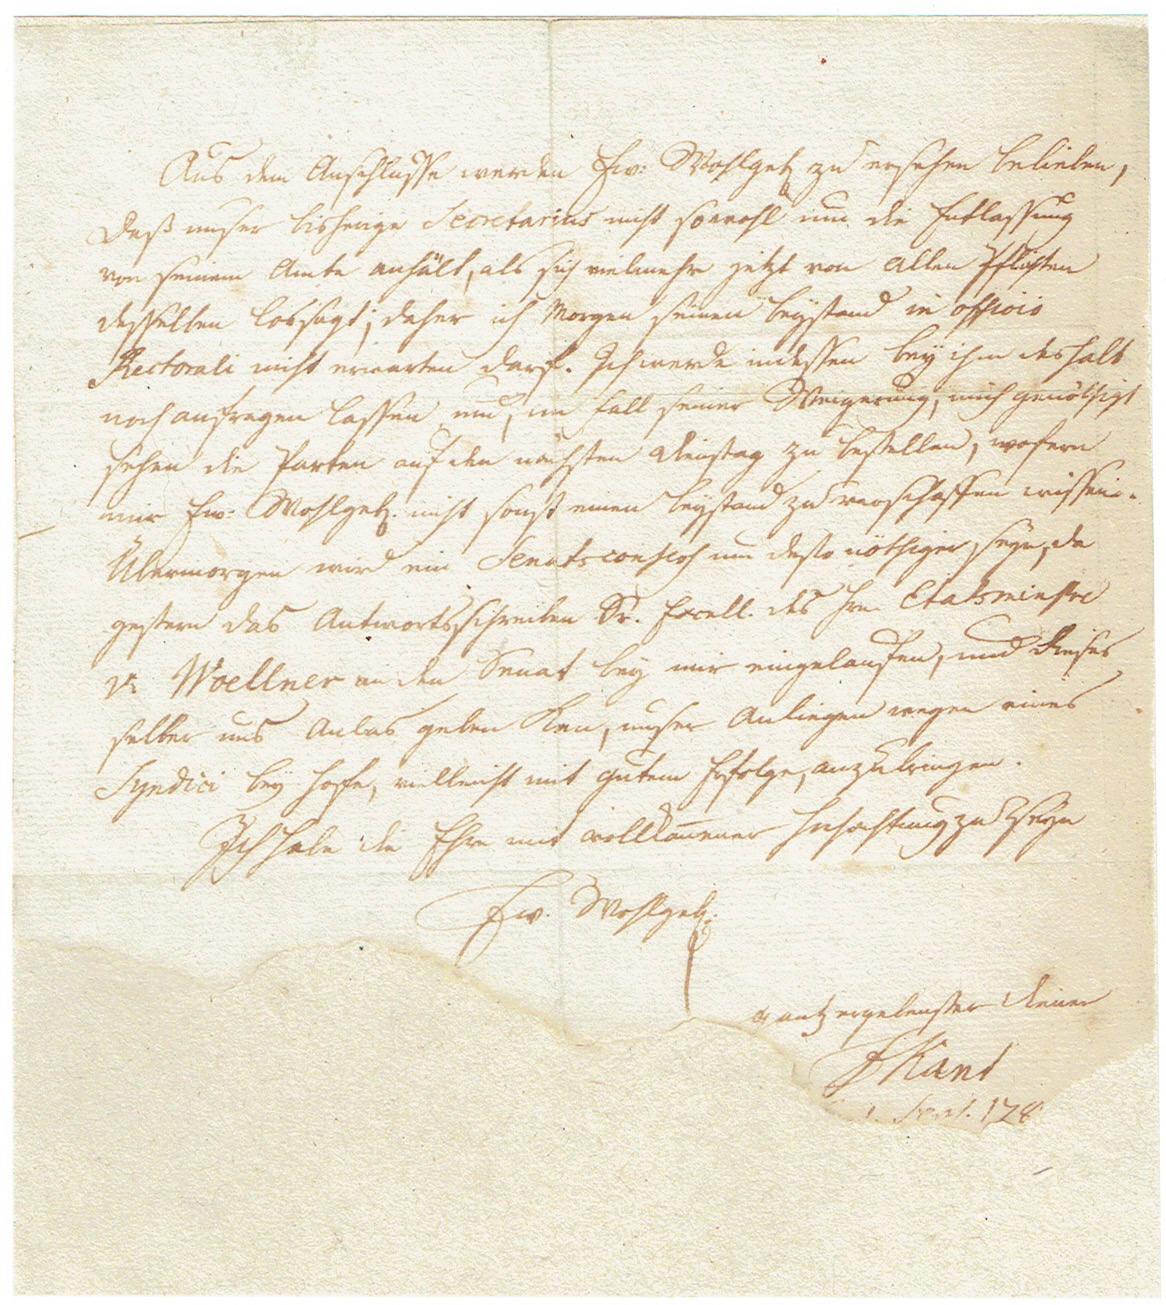 Aus dem Anschlusse werden Ew: Wohlgeb. zu ersehen belieben,
daß unser bisherige Secretarius nicht sowohl um die Entlassung
von seinem Amte anhält, als sich vielmehr jetzt von allen Pflichten
desselben lossagt; daher ich Morgen seinen Beystand in officio
Rectorali nicht erwarten darf. Ich werde indessen bey ihm deshalb
noch anfragen lassen und, im Fall seiner Weigerung, mich genöthigt
sehen die Parten auf den nächsten Dienstag zu bestellen, wofern
mir Ew: Wohlgeb. nicht sonst einen Beystand zu verschaffen wissen.
Übermorgen wird ein Senats um desto nöthiger seyn, da
gestern das Antwortsschreiben Sr. Excell. des Hrn. Etatsministre
v. Woellner an den Senat bey mir eingelaufen, und dieses
selber uns Anlas geben kan, unser Anliegen wegen eines
Syndici bey Hofe, vielleicht mit gutem Erfolge, anzubringen.
Ich habe die Ehre mit vollkommener Hochachtung zu seyn
Ew. Wohlgeb.
gantz ergebenster Diener
I Kant
Sept. 178